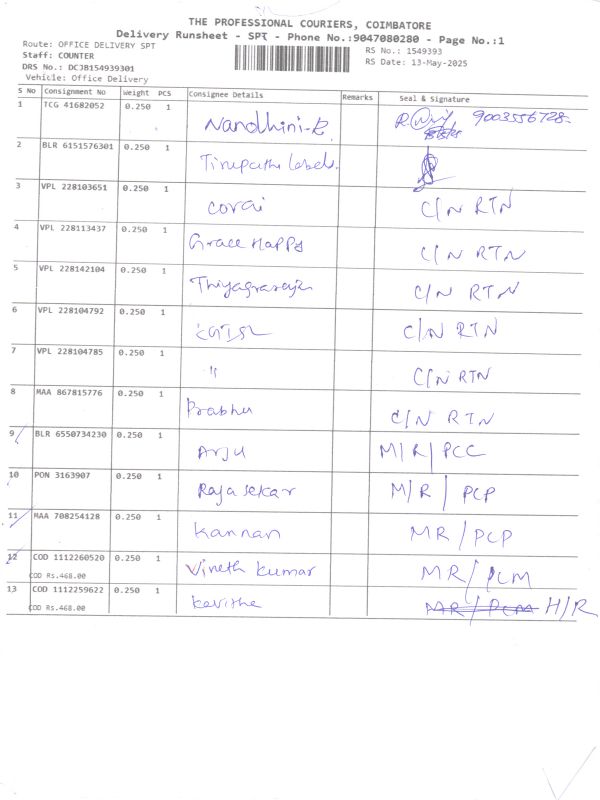 THE PROFESSIONAL COURIERS, COIMBATORE
Delivery Runsheet - SPT - Phone No.:9047080280 - Page No.:1
Route: OFFICE DELIVERY SPT
Staff: COUNTER
DRS No.: DCJB154939301
Vehicle: Office Delivery
RS No.: 1549393
RS Date: 13-May-2025
S No Consignment No Weight PCS Consignee Details Remarks Seal & Signature
1 TCG 41682052 0.250 1 Nandhini-R 9003556728
2 BLR 6151576301 0.250 1 Tirupathi Label
3 VPL 228103651 0.250 1 covai C/N RTN
4 VPL 228113437 0.250 1 Grace Happy C/N RTN
5 VPL 228142104 0.250 1 C/N RTN
6 VPL 228104792 0.250 1 C/N RTN
7 VPL 228104785 0.250 1 " C/N RTN
8 MAA 867815776 0.250 1 Prabhu C/N RTN
9 BLR 6550734230 0.250 1 Arju M/R/PCC
10 PON 3163907 0.250 1 Rajasekar M/R/ PCP
11 MAA 708254128 0.250 1 Kannan MR/PCP
12 COD 1112260520 0.250 1 Vineth kumar MR/PCM
COD Rs.468.00
13 COD 1112259622 0.250 1 kavitha MR/PCM H/R
COD Rs.468.00